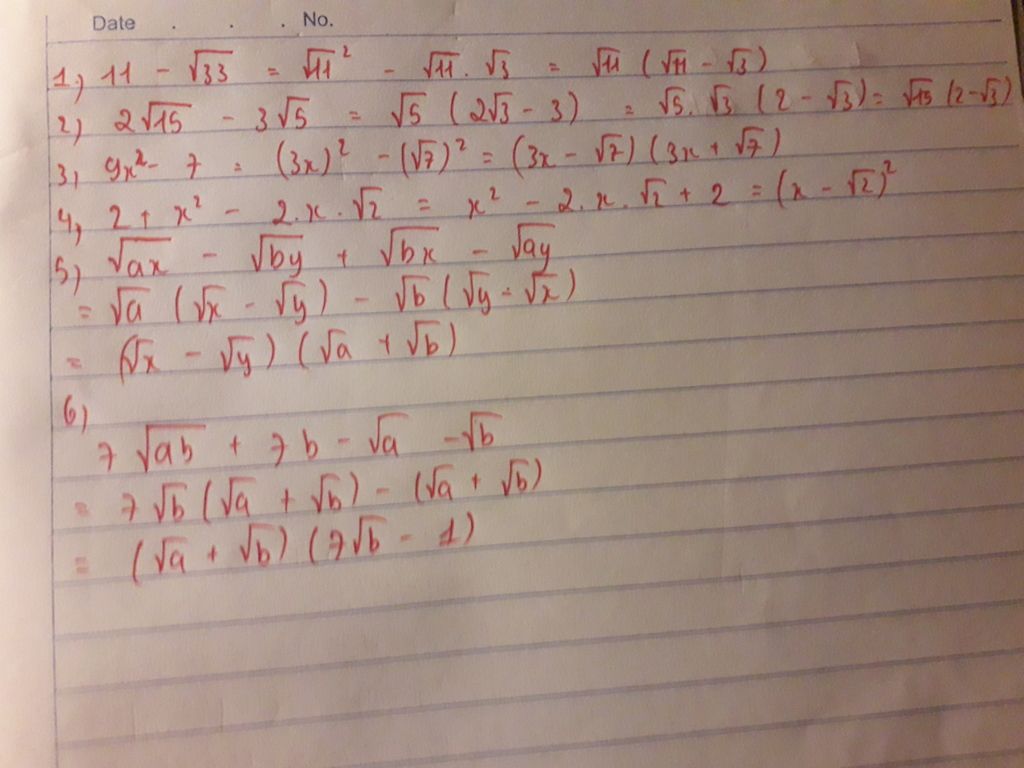 Date . . . No.
1, 11 - √33 = √11² - √11 . √3 = √11 (√11 - √3)
2) 2√15 - 3√5 = √5 (2√3 - 3) = √5 . √3 (2 - √3) = √15 (2-√3)
3, 9x² - 7 = (3x)² - (√7)² = (3x - √7) (3x + √7)
4, 2 + x² - 2.x.√2 = x² - 2.x.√2 + 2 = (x - √2)²
5) √ax - √by + √bx - √ay
= √a (√x - √y) - √b (√y - √x)
= (√x - √y) (√a + √b)
6)
7 √ab + 7 b - √a - √b
= 7 √b (√a + √b) - (√a + √b)
= (√a + √b) (7√b - 1)